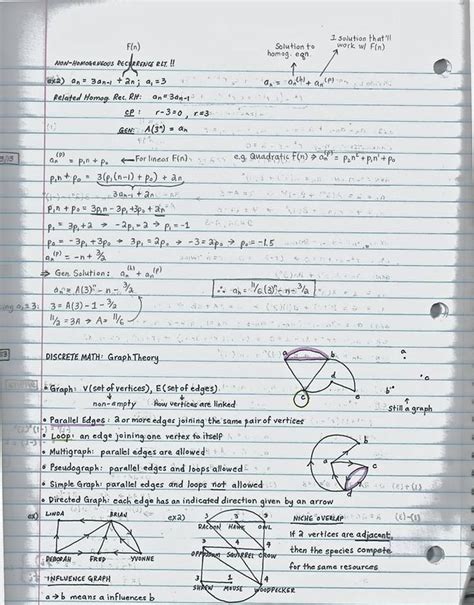 F(n)
Solution to homog. eqn.
1 solution that'll work w/ F(n)
NON-HOMOGENEOUS RECURRENCE REL!!
ex2) aₙ = 3aₙ₋₁ + 2n; a₁=3
aₙ = aₙ⁽ʰ⁾ + aₙ⁽ᵖ⁾
Related Homog. Rec. Rlt: aₙ = 3aₙ₋₁
CP: r-3=0, r=3
GEN: A(3ⁿ) = aₙ
aₙ⁽ᵖ⁾ = p₁n + p₀ ← For linear F(n)
e.g. Quadratic F(n) ⇒ aₙ⁽ᵖ⁾ = p₂n² + p₁n¹ + p₀
p₁n + p₀ = 3(p₁(n-1) + p₀) + 2n
3aₙ₋₁ + 2n
p₁n + p₀ = 3p₁n - 3p₁ + 3p₀ + 2n
p₁ = 3p₁ + 2 → -2p₁ = 2 → p₁ = -1
p₀ = -3p₁ + 3p₀ → 3p₁ = 2p₀ → -3 = 2p₀ → p₀ = -1.5
aₙ⁽ᵖ⁾ = -n + 3/2
⇒ Gen. Solution: aₙ⁽ʰ⁾ + aₙ⁽ᵖ⁾
aₙ = A(3)ⁿ - n - 3/2
∴ aₙ = 11/6 (3)ⁿ - n - 3/2
3 = A(3) - 1 - 3/2
11/2 = 3A → A = 11/6
DISCRETE MATH: Graph Theory
a b
c d e
a
b
c
Still a graph
• Graph: V(set of vertices), E(set of edges)
non-empty
How vertices are linked
• Parallel Edges: 2 or more edges joining the same pair of vertices
• Loop: an edge joining one vertex to itself
• Multigraph: parallel edges are allowed
• Pseudograph: parallel edges and loops allowed
• Simple Graph: parallel edges and loops not allowed
• Directed Graph: each edge has an indicated direction given by an arrow
b
a c
d
ex)
LINDA BRIAN
DEBORAH FRED YVONNE
INFLUENCE GRAPH
a → b means a influences b
ex2)
3 3 3
RACOON HAWK OWL
3 4 4
OPPOSSUM SQUIRREL CROW
3 1 3
SHREW MOUSE WOODPECKER
NICHE OVERLAP
If 2 vertices are adjacent,
then the species compete
for the same resources